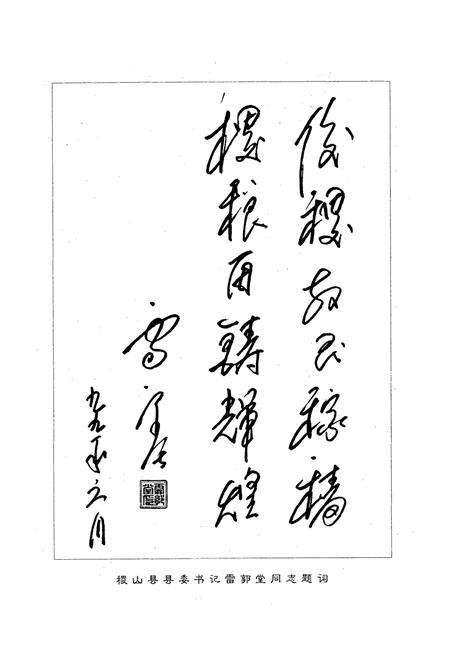 後稷教民稼穑
稷粮再鑄輝煌
雷郭堂
九九年六月
稷山县县委书记雷郭堂同志题词